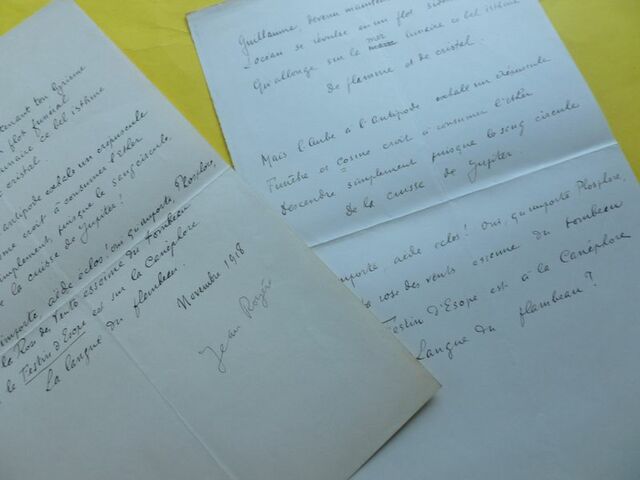 tenant ton
flot funéral
ce bel isthme
cristal.
antipode exhale un crépuscule
croit à consumer l'Ether
simplement, puisque le sang circule
la cuisse de Jupiter!
importe aède éclos! oui, qu'importe Phosphore,
la Rose des Vents essonne du Tombeau
le Festin d'Esope est sur la Canéphore
La langue du flambeau.
Novembre 1918
Guillaume, devenu
L'océan se révulse en un flot
Qu'allonge sur la mer lunaire ce bel isthme
De flamme et de cristal.
Mais l'aube à l'antipode exhale un crépuscule
Funèbre et cosme croit à consumer l'Ether
Descendre simplement puisque le sang circule
De la cuisse de Jupiter.
importe, aède éclos! Oui, qu'importe Phosphore,
rose des vents essonne du tombeau
Festin d'Esope est à la Canéphore
Langue du flambeau?